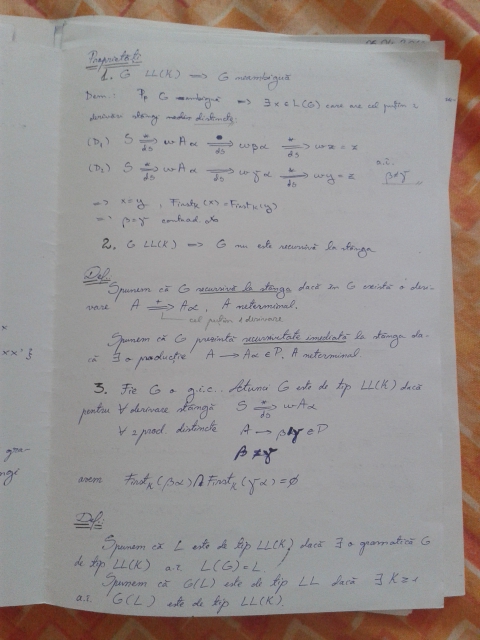 Proprietăți
1. G LL(K) => G neambiguă
Dem: Pp G ambiguă => ∃ x ∈ L(G) care are cel puțin 2
derivări stângi distincte:
(D1) S *=>ds wAα =>ds wβα *=>ds wx = z
(D2) S *=>ds wAα =>ds wγα *=>ds wy = z a.î. β≠γ
=> x=y, FirstK(x)=FirstK(y)
=> β=γ contrad.
2. G LL(K) => G nu este recursivă la stânga
Def:
Spunem că G recursivă la stânga dacă în G există o deri-
vare A +=> Aα, A neterminal.
cel puțin 1 derivare
Spunem că G prezintă recursivitate imediată la stânga da-
că ∃ o producție A → Aα ∈ P, A neterminal.
3. Fie G o g.i.c... Atunci G este de tip LL(K) dacă
pentru ∀ derivare stângă S *=>ds wAα
∀ 2 prod. distincte A → β|γ ∈ P
β ≠ γ
avem FirstK(βα) ∩ FirstK(γα) = ∅
Def:
Spunem că L este de tip LL(K) dacă ∃ o gramatică G
de tip LL(K) a.î. L(G)=L.
Spunem că G(L) este de tip LL dacă ∃ K ≥ 1
a.î. G(L) este de tip LL(K).
x
xx' }
gra-